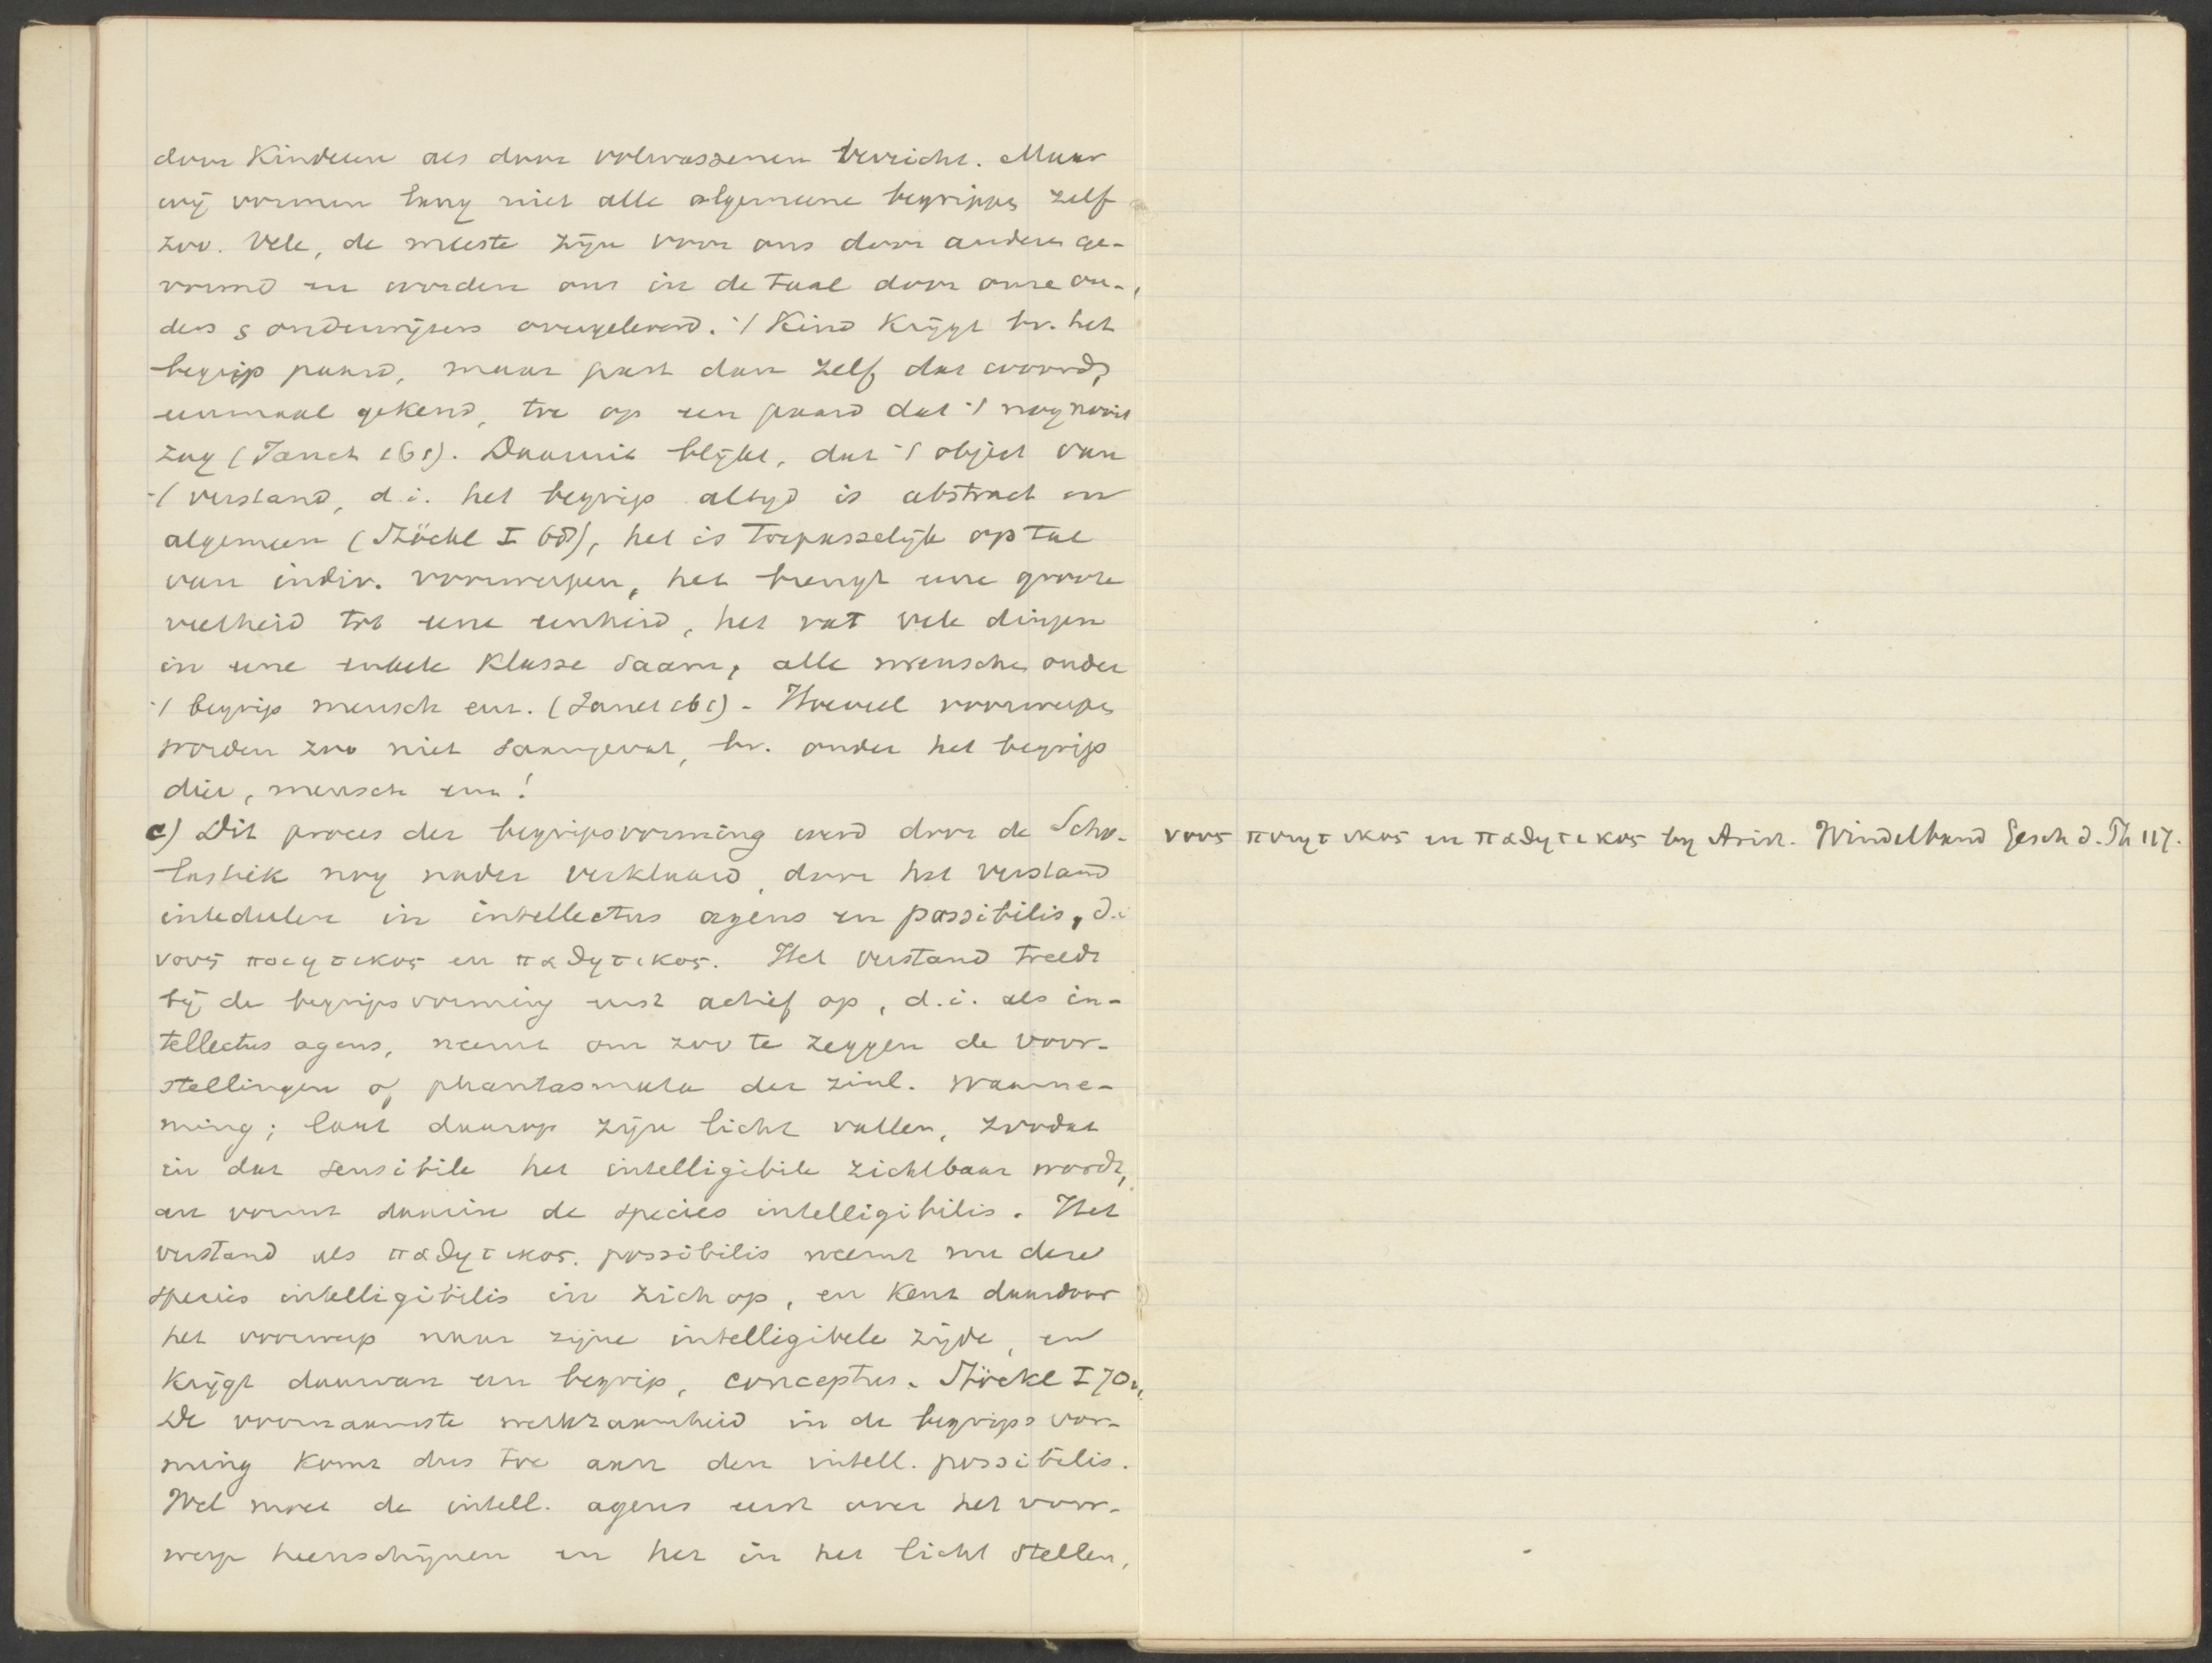 door Kinderen als door volwassenen verricht. Maar
wij vormen lang niet alle algemeene begrippen zelf
zoo. Vele, de meeste zijn voor ons door anderen ge-
vormd en worden ons in de taal door onze ou-
ders & onderwijzers overgeleverd. 't Kind krijgt bv. het
begrip paard, maar past dan zelf dat woord,
eenmaal gekend, toe op een paard dat 't nog nooit
zag (Janet 161). Daaruit blijkt, dat 't object van
't verstand, d.i. het begrip altijd is abstract en
algemeen (Stöckl I 68), het is toepasselijk op tal
van indiv. voorwerpen, het brengt eene groote
veelheid tot eene eenheid, het vat vele dingen
in eene enkele Klasse saam, alle menschen onder
't begrip mensch enz. (Janet 161) - Hoeveel voorwerpen
worden zoo niet saamgevat, bv. onder het begrip
dier, mensch enz!
c) Dit proces der begripsvorming werd door de Scho-
lastiek nog nader verklaard, door het verstand
intedeelen in intellectus agens en possibilis, d.i
νους ποιητικος en παθητικος. Het verstand treedt
bij de begripsvorming eerst actief op, d.i. als in-
tellectus agens, neemt om zoo te zeggen de voor-
stellingen of phantasmata der zinl. waarne-
ming; laat daarop zijn licht vallen, zoodat
in dat sensibile het intelligibile zichtbaar wordt,
en vormt daarin de species intelligibilis. Het
verstand als παθητικος. possibilis neemt nu deze
species intelligibilis in zich op, en kent daardoor
het voorwerp naar zijne intelligibele zijde, en
krijgt daarvan een begrip, conceptus. Stöckl I 70.
De voornaamste werkzaamheid in de begripsvor-
ming komt dus toe aan den intell. possibilis.
Wel moet de intell. agens eerst over het voor-
werp heenschijnen en het in het licht stellen,
νους ποιητικος en παθητικος by Arist. Windelband Gesch d. Ph 117.